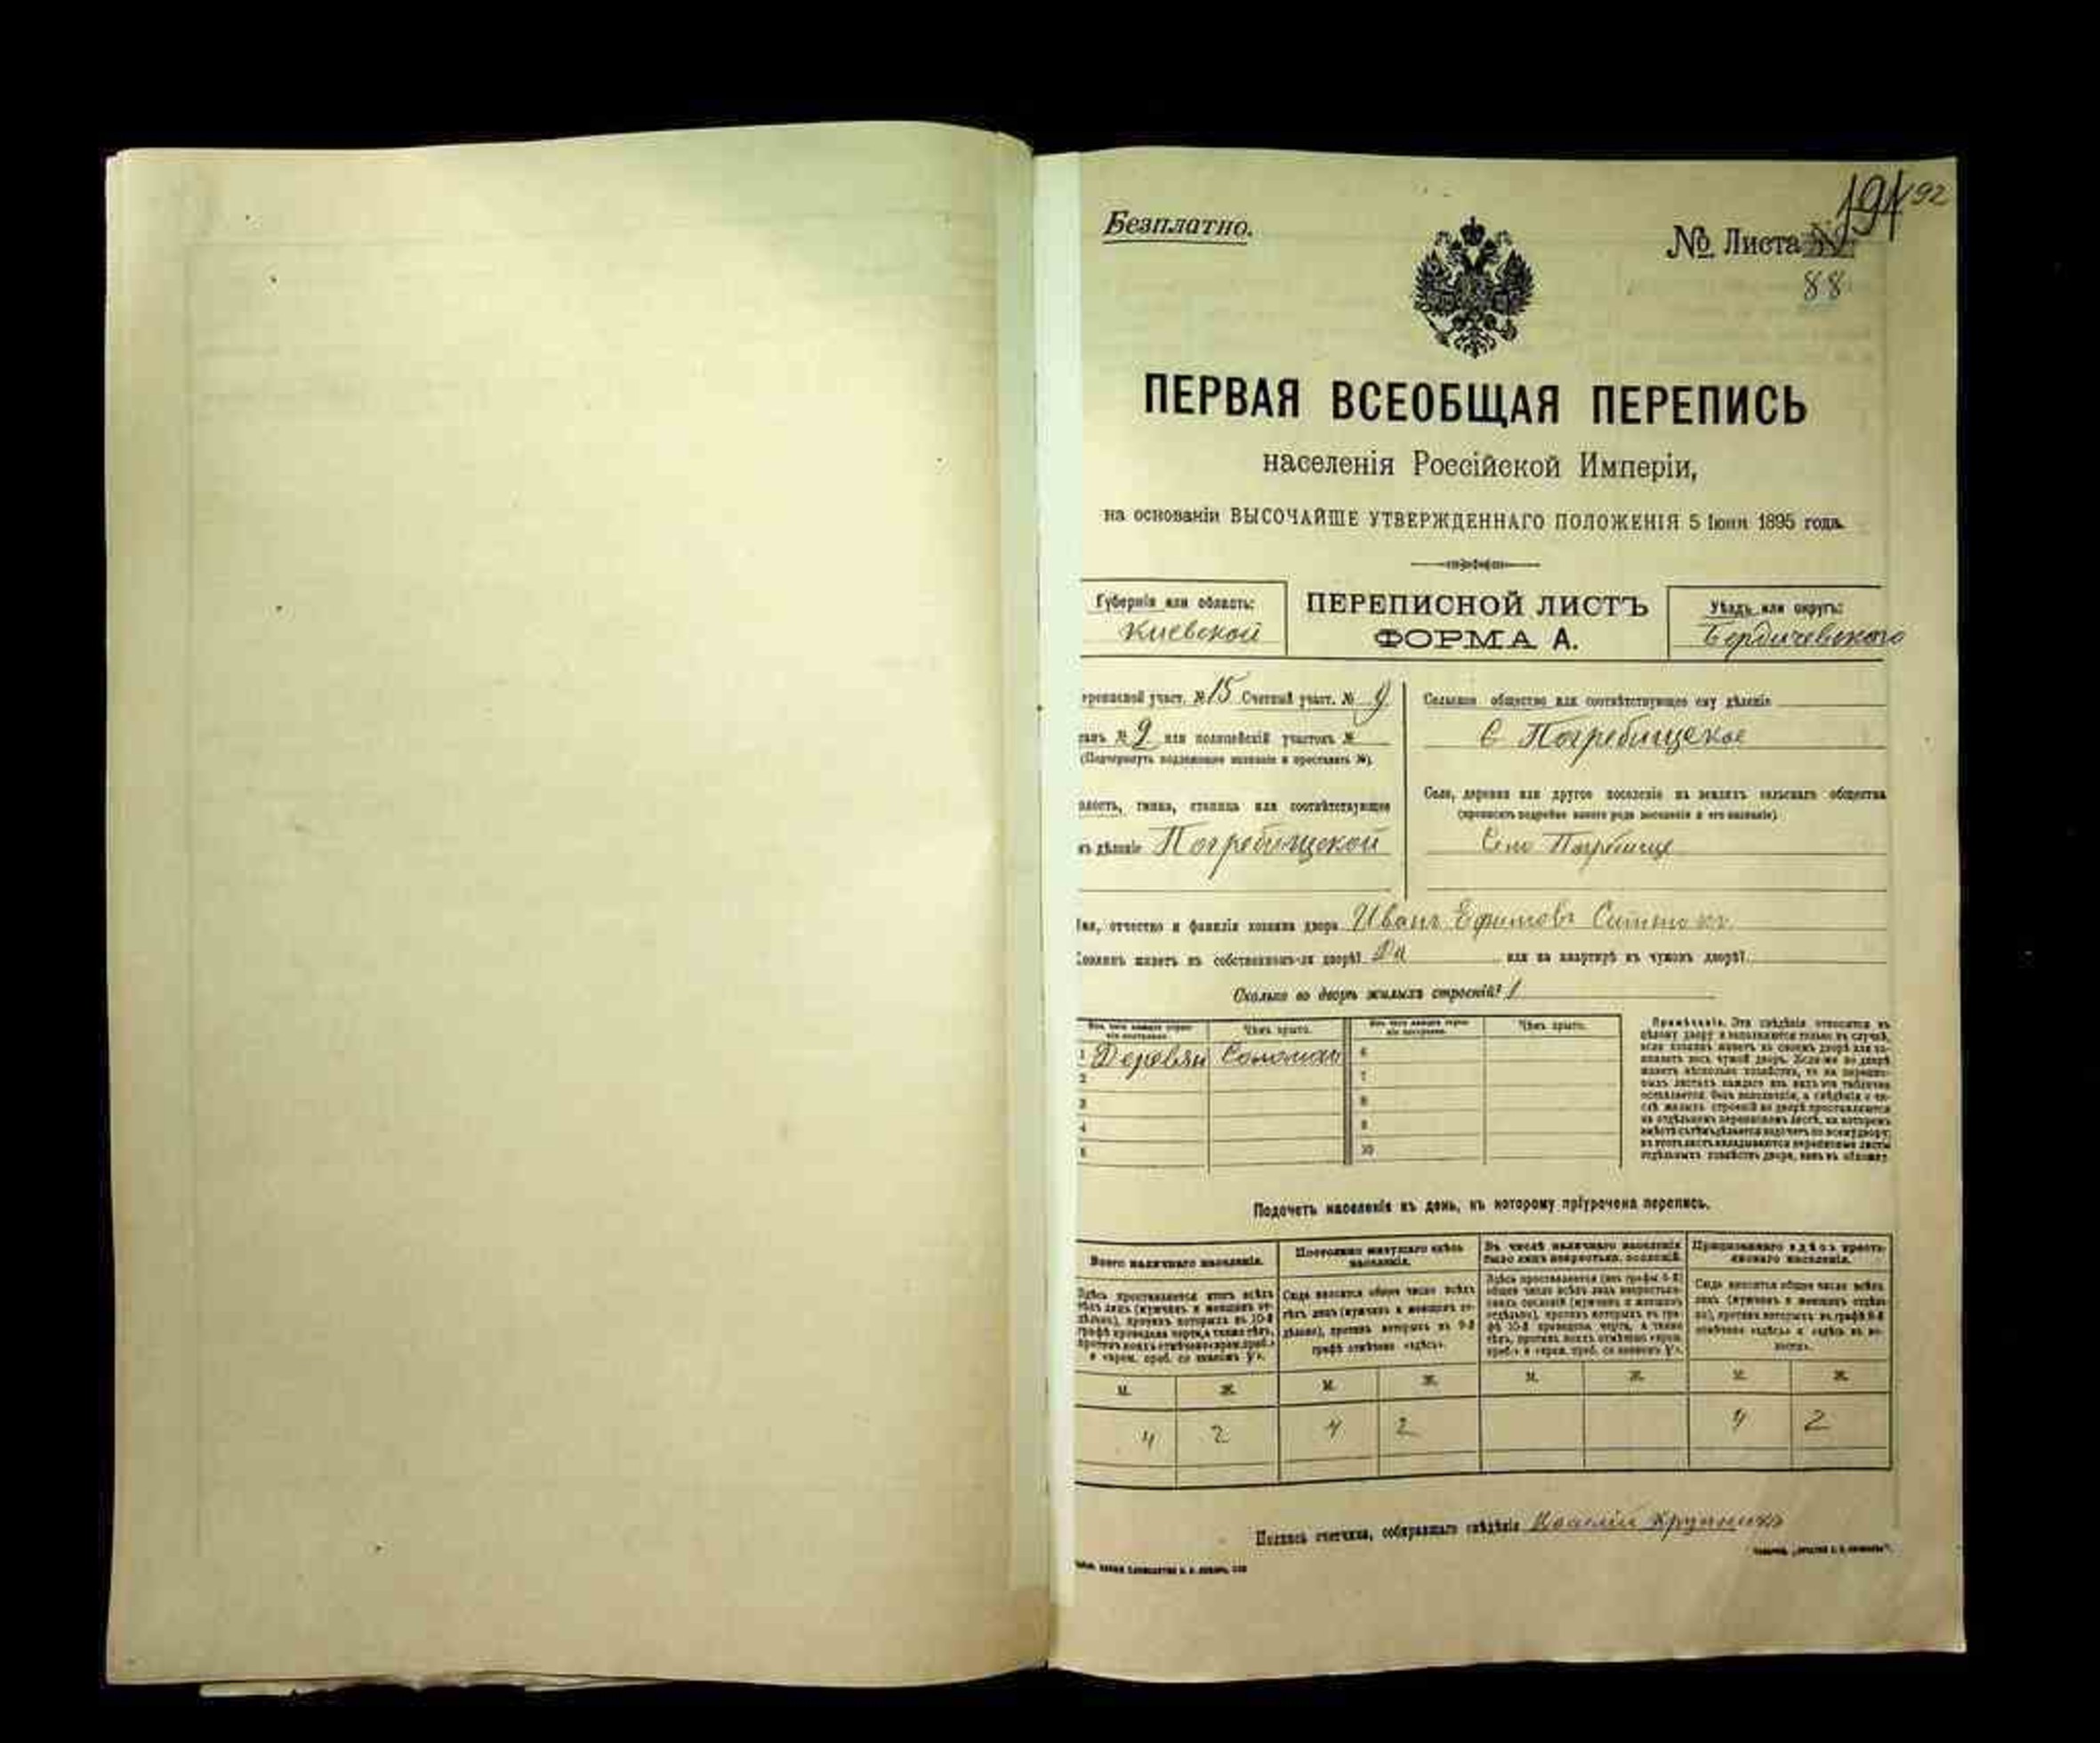 Безплатно.
№ Листа
191 192
88
ПЕРВАЯ ВСЕОБЩАЯ ПЕРЕПИСЬ
населенія Россійской Имперіи,
на основаніи ВЫСОЧАЙШЕ УТВЕРЖДЕННАГО ПОЛОЖЕНІЯ 5 Іюня 1895 года.
Губернія или область:
Киевской
ПЕРЕПИСНОЙ ЛИСТЪ
ФОРМА А.
Уѣздъ или округъ:
Бердичевского
ереписной участ. № 15 Счетный участ. № 9
танъ № 2 или полицейскій участокъ №
(Подчеркнуть подлежащее названіе и проставить №).
олость, гмина, станица или соотвѣтствующее
въ дѣленіе Погребищской
Сельское общество или соотвѣтствующее ему дѣленіе
Погребищское
Село, деревня или другое поселеніе на земляхъ сельскаго общества
(прописать подробно какого рода поселеніе и его названіе)
Село Погребище
Имя, отчество и фамилія хозяина двора Иванъ Ефимовъ
Хозяинъ живетъ въ собственномъ-ли дворѣ? Да или на квартирѣ въ чужомъ дворѣ?
Сколько во дворѣ жилыхъ строеній? 1
Чѣмъ крыто. Чѣмъ крыто.
1 Деревян Соломан 6
2 7
3 8
4 9
5 10
Примѣчаніе. Эти свѣдѣнія относятся къ
цѣлому двору и заполняются только въ случаѣ,
если хозяинъ живетъ въ своемъ дворѣ или за-
нимаетъ весь чужой дворъ. Если-же во дворѣ
живетъ нѣсколько хозяйствъ, то на перепис-
ныхъ листахъ каждаго изъ нихъ эта табличка
оставляется безъ заполненія, а свѣдѣнія о чи-
слѣ жилыхъ строеній во дворѣ проставляются
на отдѣльномъ переписномъ листѣ, на которомъ
вмѣстѣ съ тѣмъ дѣлается подсчетъ по всему двору;
въ этотъ листъ вкладываются переписные листы
отдѣльныхъ хозяйствъ двора, какъ въ обложку.
Подсчетъ населенія въ день, къ которому пріурочена перепись.
Всего наличнаго населенія.
Постоянно живущаго здѣсь
населенія.
Въ числѣ наличнаго населенія
было лицъ некрестьян. сословій.
Приписаннаго здѣсь кресть-
янскаго населенія.
Здѣсь проставляется итогъ всѣхъ
тѣхъ лицъ (мужчинъ и женщинъ от-
дѣльно), противъ которыхъ въ 10-й
графѣ проведена черта, а также тѣхъ,
противъ коихъ отмѣчено «врем. преб.»
Сюда вносится общее число всѣхъ
тѣхъ лицъ (мужчинъ и женщинъ от-
дѣльно), противъ которыхъ въ 9-й
графѣ отмѣчено «здѣсь».
Сюда вносится общее число всѣхъ
лицъ (мужчинъ и женщинъ отдѣль-
но), противъ которыхъ въ графѣ 8-й
отмѣчено «здѣсь» и «здѣсь въ во-
лости».
М. Ж. М. Ж. М. Ж. М. Ж.
4 2 4 2 4 2
Подпись счетчика, собиравшаго свѣдѣнія